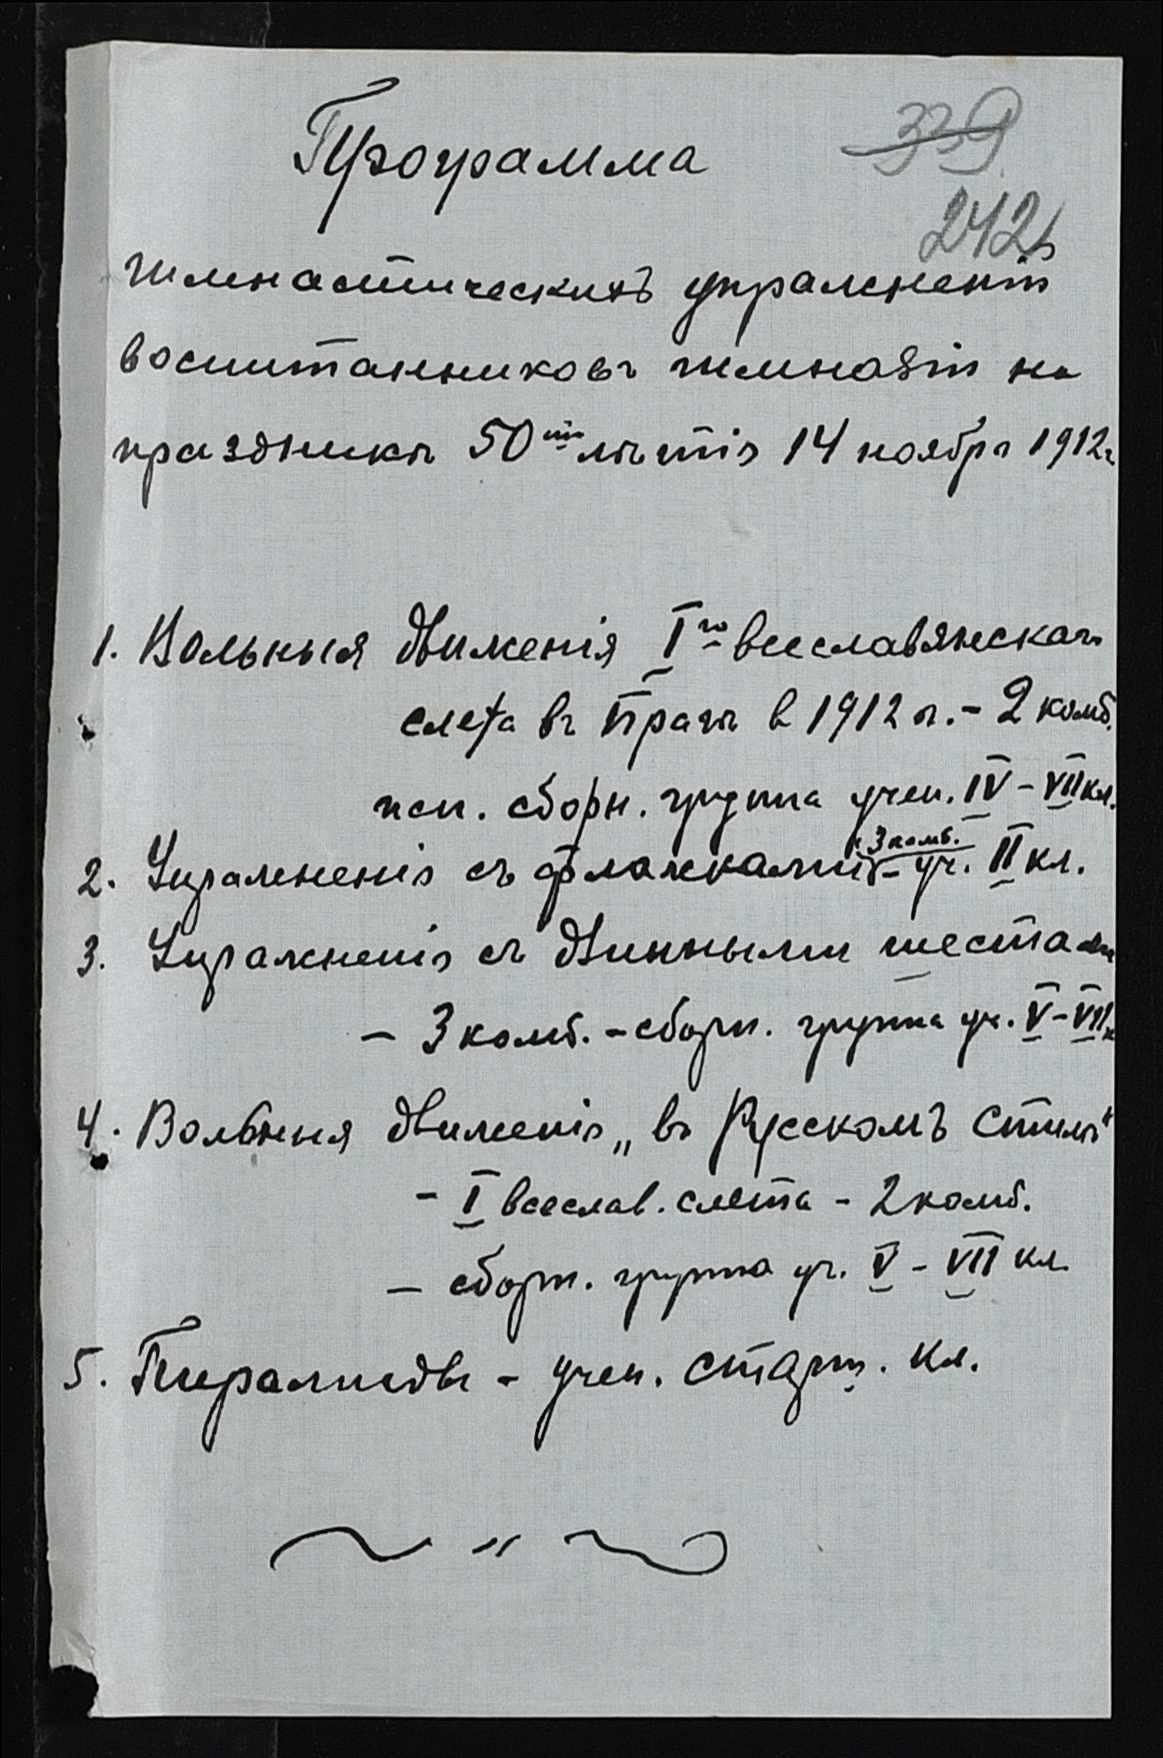 Программа
339
242
гимнастическихъ упражненій
воспитанниковъ гимназіи на
праздникѣ 50ти лѣтія 14 ноября 1912г
1. Вольныя движенія Iго всеславянскаго
слета въ Прагѣ в 1912 г. - 2 комб.
исп. сборн. группа учен. IV - VII кл.
3 комб.
2. Упражненія съ флажками - уч. II кл.
3. Упражненія съ длинными шестами
- 3 комб. - сборн. группа уч. V - VII к
4. Вольныя движенія „въ Русскомъ стилѣ"
- I всеслав. слета - 2 комб.
- сборн. группа уч. V - VII кл.
5. Пирамиды - учен. старш. кл.